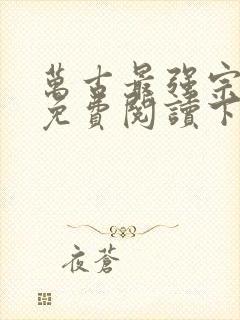 萬古最強宗
免費閱讀下
夜蒼